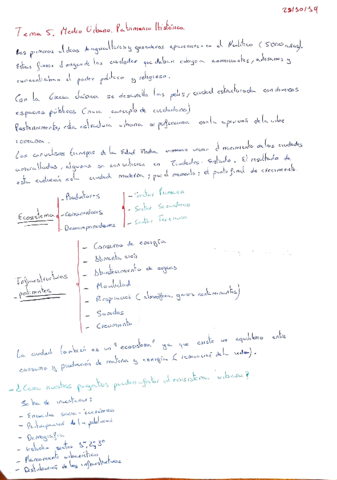 28/10/19
Tema 5. Medio Urbano. Patrimonio Histórico
Las primeras aldeas de agricultores y ganaderos aparecieron en el Neolítico (5000 a.C.)
Estas fueron el origen de las ciudades que debían cobijar comerciantes, artesanos y
centralizaban el poder político y religioso.
Con la Grecia clásica se desarrolla las polis, ciudad estructurada con diversos
espacios públicos (nuevo concepto de ciudadano)
Posteriormente, esta estructura urbana se perfecciona con la aparición de la urbe
romana.
Con convulsiones Europeas de la Edad Media, vuelve el movimiento de las ciudades
amuralladas, algunas se convirtieron en Ciudades-Estado. El resultado de
esta evolución es la ciudad moderna; por el momento, el punto final de crecimiento.
Ecosistema
- Productores
- Consumidores
- Descomponedores
- Sector Primario
- Sector Secundario
- Sector Terciario
Infraestructuras
- Consumo de energía
- Alimentación
- Abastecimiento de aguas
- Movilidad
- Residuos (atmosféricos, gases contaminantes)
- Sonidos
- Crecimiento
La ciudad también es un "ecosistema" ya que existe un equilibrio entre
consumo y producción de materia y energía
- ¿Cómo nuestros proyectos pueden afectar al ecosistema urbano?
Se ha de investigar:
- Encuadre socio-económico
- Participación de las políticas
- Demografía
- Estudio sector 1º, 2º y 3º
- Planeamiento urbanístico
- Distribución de las infraestructuras